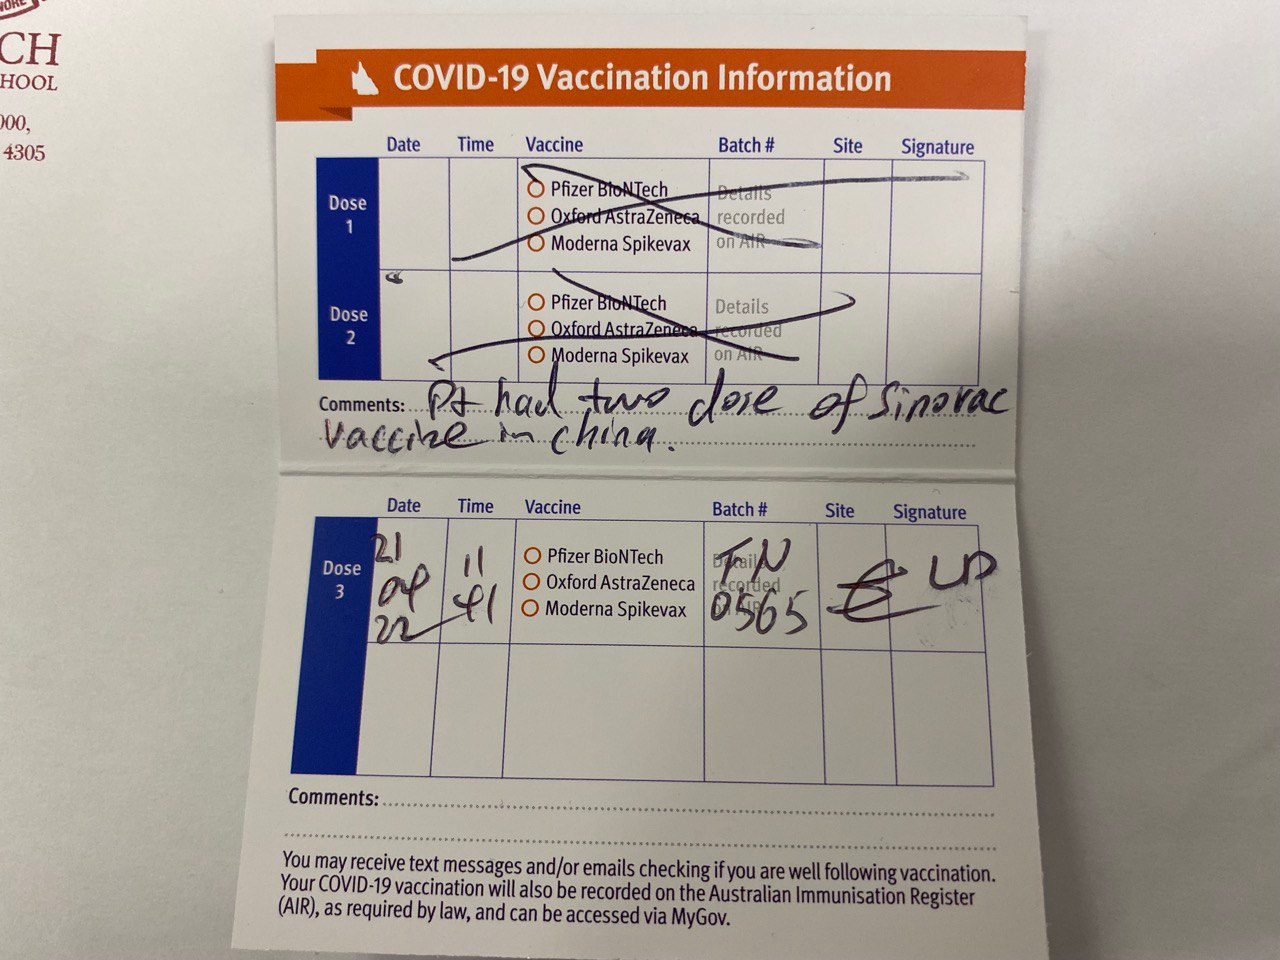 CH
HOOL
000,
4305
COVID-19 Vaccination Information
Date Time Vaccine Batch # Site Signature
Dose 1
Pfizer BioNTech
Oxford AstraZeneca
Moderna Spikevax
Details recorded on AIR
Dose 2
Pfizer BioNTech
Oxford AstraZeneca
Moderna Spikevax
Details recorded on AIR
Comments: Pt had two dose of Sinovac
vaccine in china.
Date Time Vaccine Batch # Site Signature
Dose 3
21
04
22
11
41
Pfizer BioNTech
Oxford AstraZeneca
Moderna Spikevax
Details recorded on AIR
FN
0565
Comments:
You may receive text messages and/or emails checking if you are well following vaccination.
Your COVID-19 vaccination will also be recorded on the Australian Immunisation Register
(AIR), as required by law, and can be accessed via MyGov.